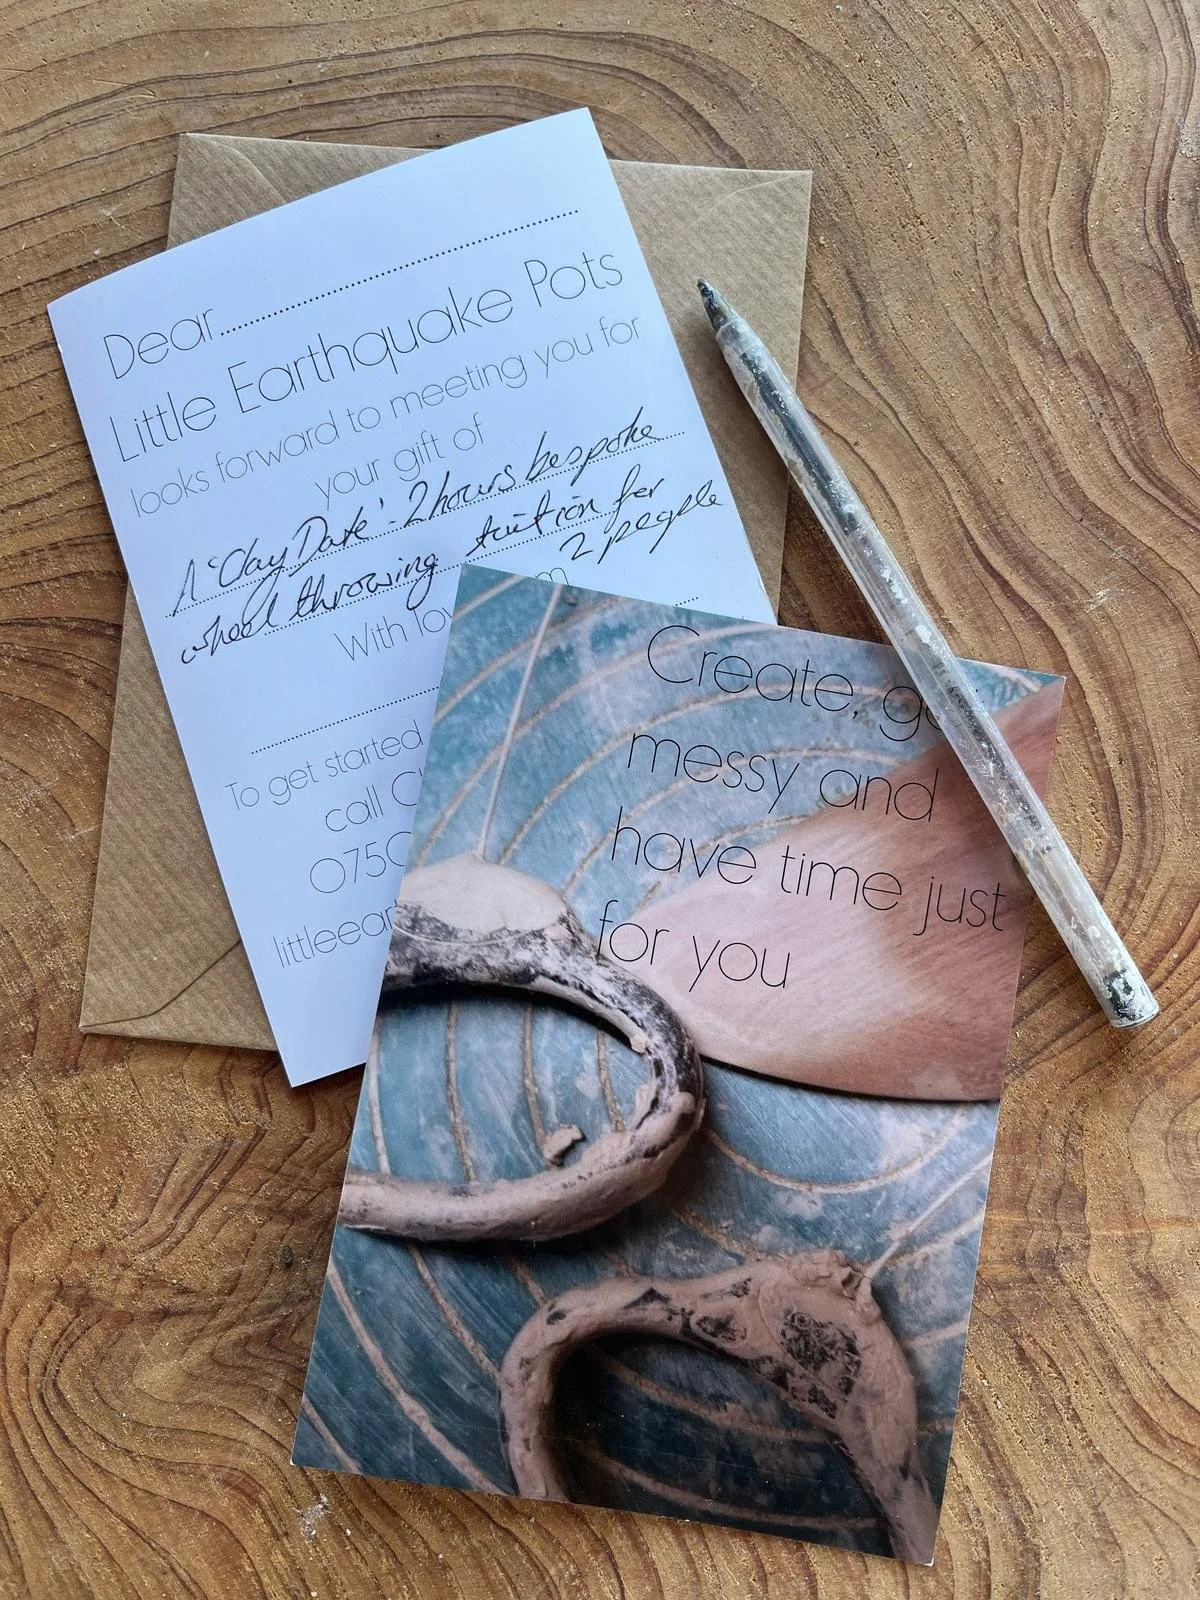 Dear
Little Earthquake Pots
looks forward to meeting you for
your gift of
A 'Clay Date'. 2 hours bespoke
wheel throwing tuition for
2 people
With
To get started
call
Create,
messy and
have time just
for you